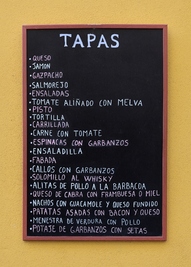 TAPAS
·QUESO
·JAMON
·GAZPACHO
·SALMOREJO
·ENSALADAS
·TOMATE ALIÑADO CON MELVA
·PISTO
·TORTILLA
·CARRILLADA
·CARNE CON TOMATE
·ESPINACAS CON GARBANZOS
·ENSALADILLA
·FABADA
·CALLOS CON GARBANZOS
·SOLOMILLO AL WHISKY
·ALITAS DE POLLO A LA BARBACOA
·QUESO DE CABRA CON FRAMBUESA O MIEL
·NACHOS CON GUACAMOLE Y QUESO FUNDIDO
·PATATAS ASADAS CON BACON Y QUESO
·MENESTRA DE VERDURA CON POLLO
·POTAJE DE GARBANZOS CON SETAS